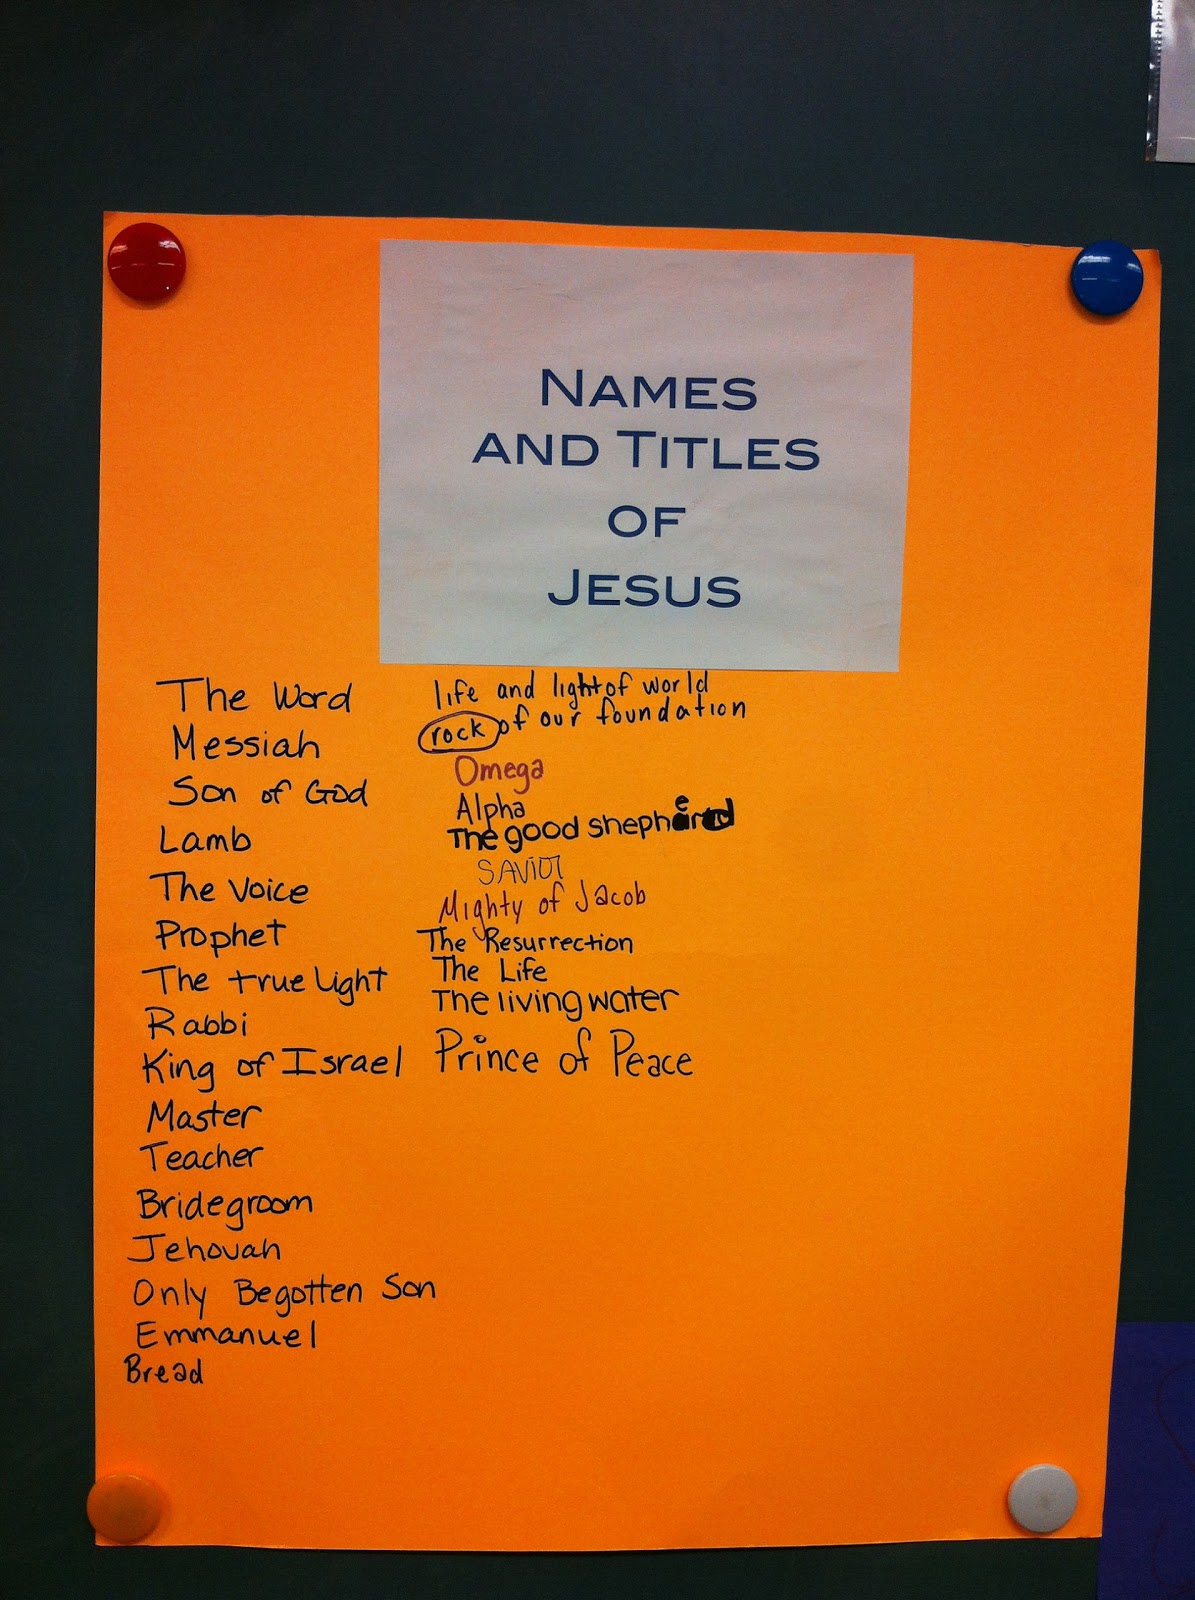 NAMES
AND TITLES
OF
JESUS
The Word
Messiah
Son of God
Lamb
The Voice
Prophet
The true Light
Rabbi
King of Israel
Master
Teacher
Bridegroom
Jehovah
Only Begotten Son
Emmanuel
Bread
life and light of world
rock of our foundation
Omega
Alpha
The good shepherd
SAVIOR
Mighty of Jacob
The Resurrection
The Life
The living water
Prince of Peace